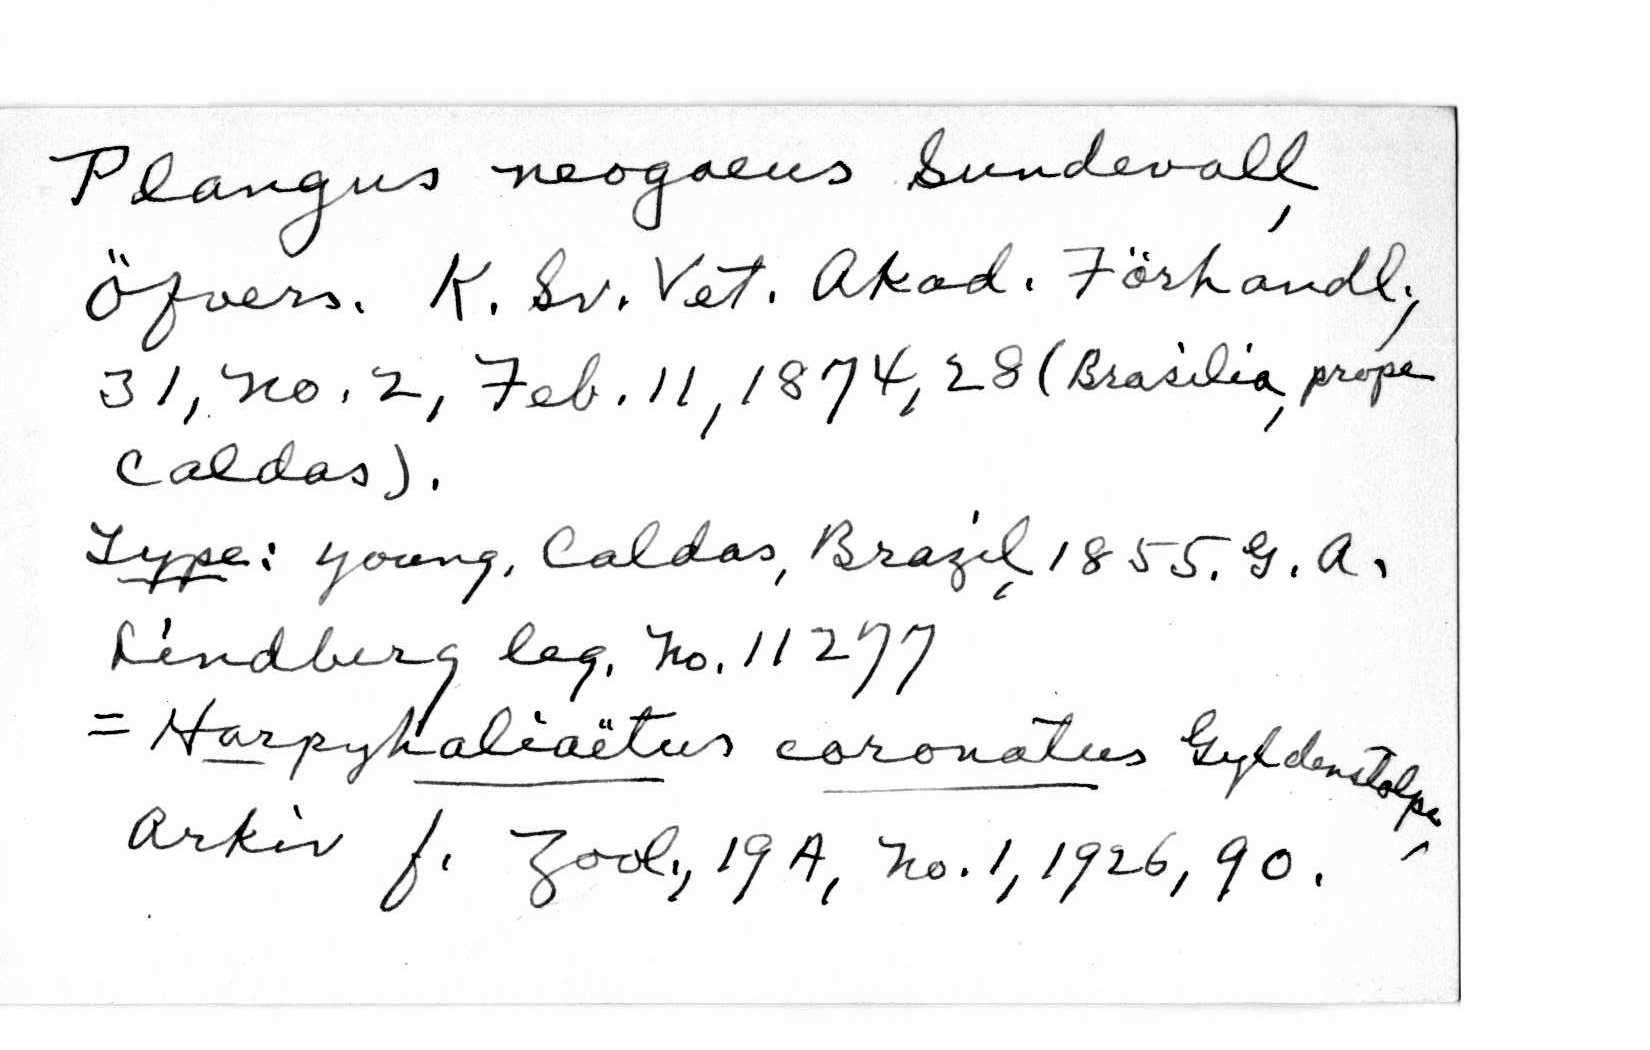 Plangus neogaeus Sundevall,
Öfvers. K. Sv. Vet. Akad. Förhandl.,
31, No. 2, Feb. 11, 1874, 28 (Brasilia, prope
Caldas).
Type: young, Caldas, Brazil, 1855. G. A.
Lindberg leg. No. 11277
= Harpyhaliaëtus coronatus Gyldenstolpe,
Arkiv f. Zool., 19A, No. 1, 1926, 90.